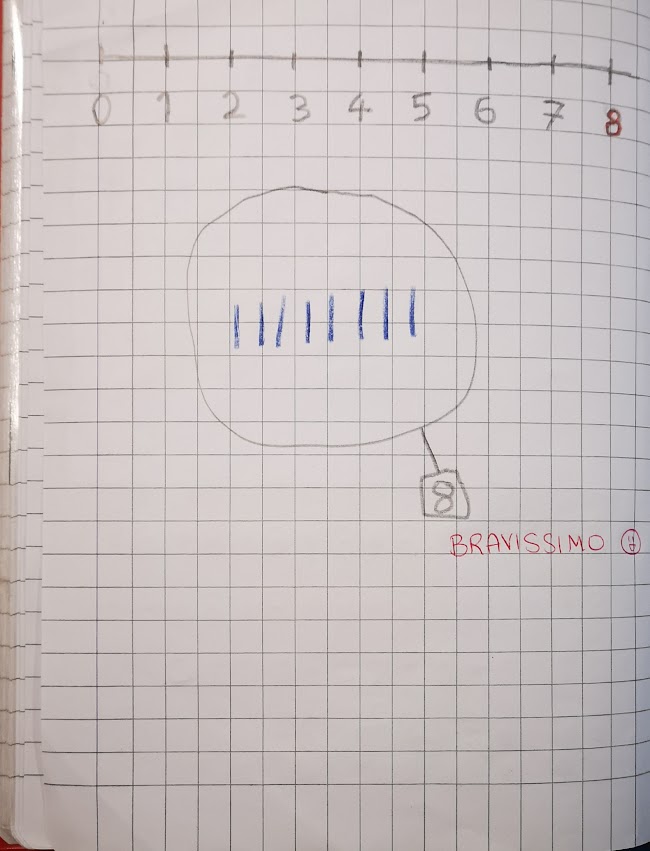 0 1 2 3 4 5 6 7 8
8
BRAVISSIMO